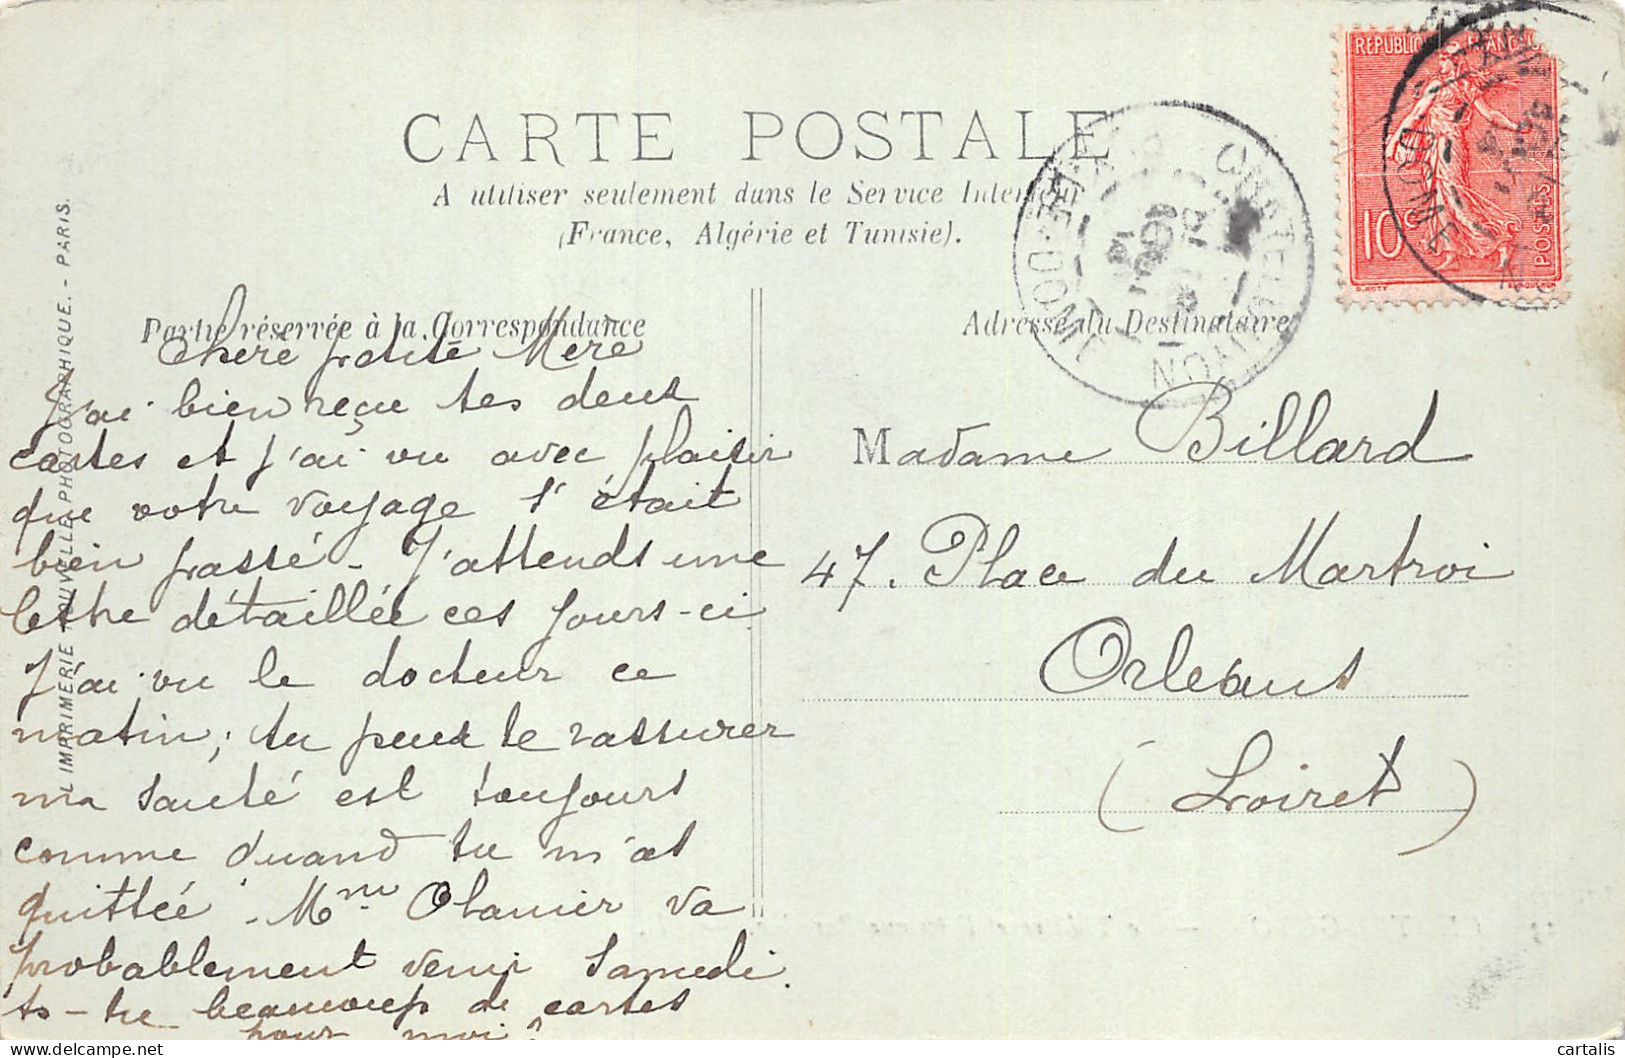 CARTE POSTALE
A utiliser seulement dans le Service Intérieur
(France, Algérie et Tunisie).
Partie réservée à la Correspondance
Adresse du Destinataire
L'IMPRIMERIE NOUVELLE PHOTOGRAPHIQUE. - PARIS.
REPUBLIQUE FRANCAISE
10c
POSTES
O. ROTY
E. MOUCHON
CHATELGUYON
PUY-DE-DOME
Chère petite Mère
J'ai bien reçu tes deux
cartes et j'ai vu avec plaisir
que votre voyage s'était
bien passé - J'attends une
lettre détaillée ces jours-ci
J'ai vu le docteur ce
matin, tu peux te rassurer
ma santé est toujours
comme quand tu m'as
quittée. Mme Olanier va
probablement venir samedi.
as-tu beaucoup de cartes
pour moi?
Madame Billard
47. Place du Martroi
Orléans
(Loiret)
cartalis